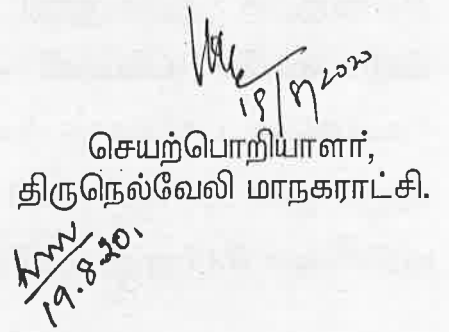 19/8/2020
செயற்பொறியாளர்,
திருநெல்வேலி மாநகராட்சி.
19.8.20.